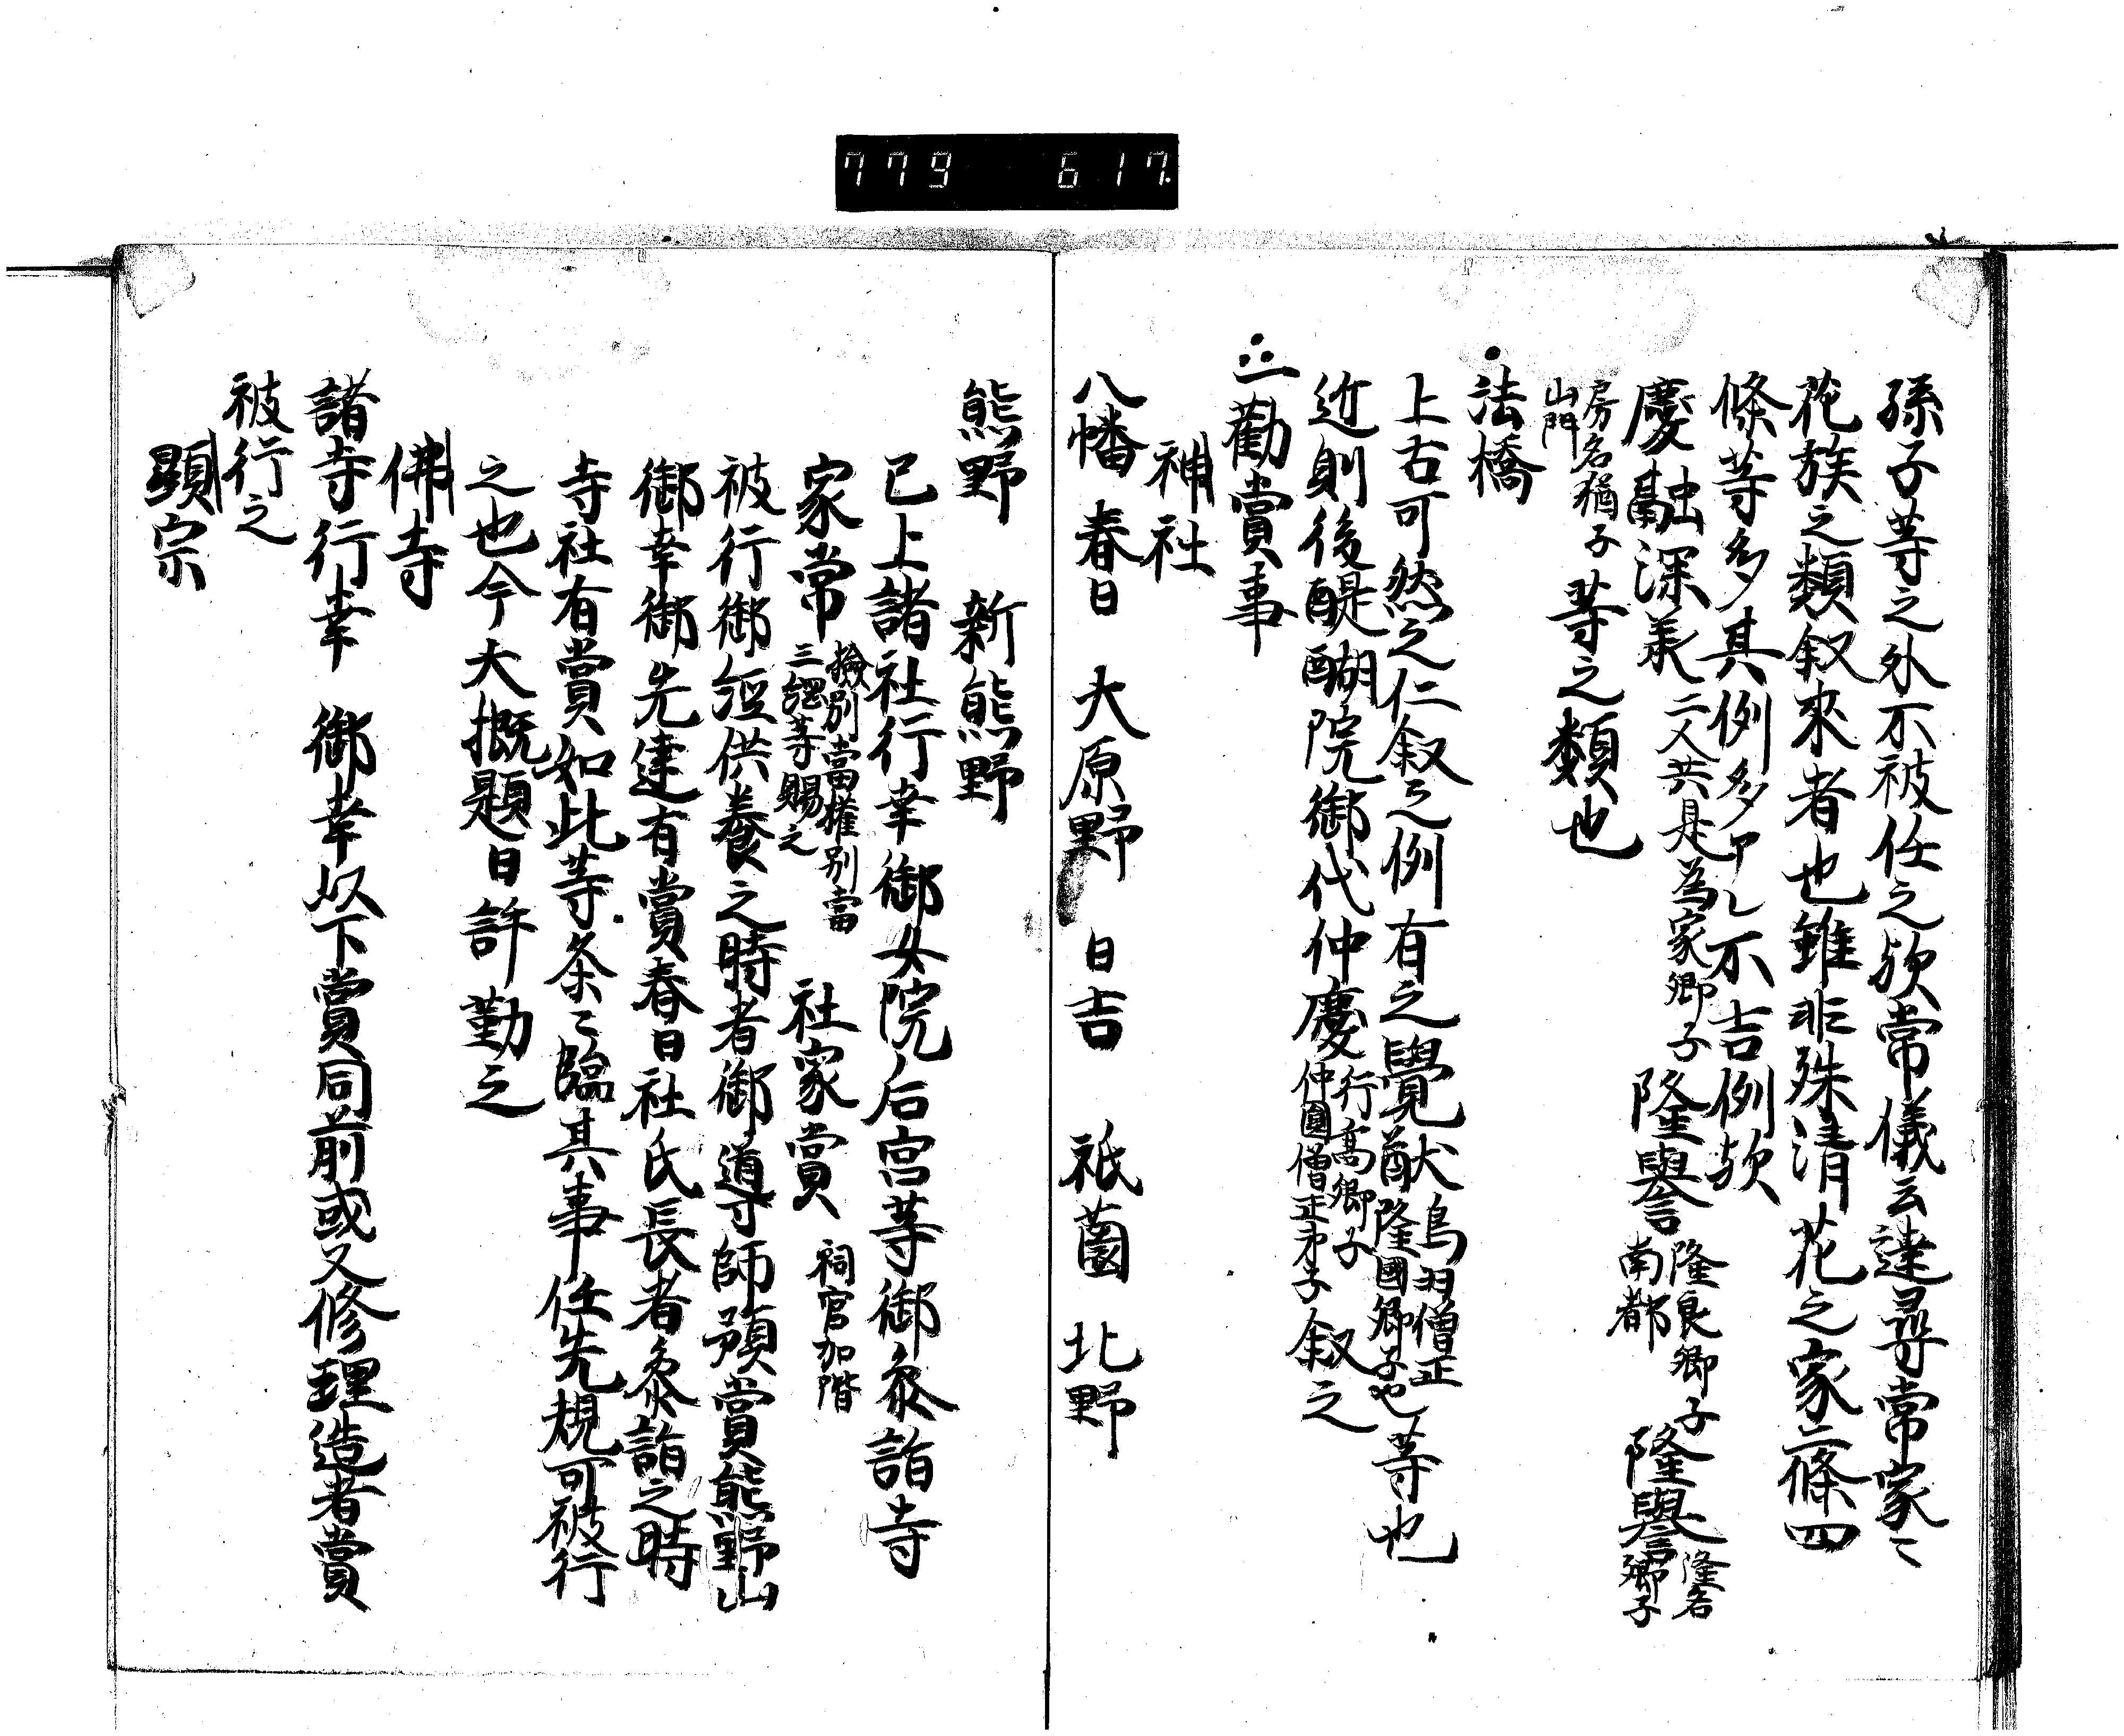 779 617.
孫子等之外不被任之欤常儀云達尋常家〻
花族之類叙來者也雖非殊清花之家二條四
條等多其例多了し不吉例欤
慶融深義二人共是為家卿子隆譽隆良卿子南都隆譽隆名卿子
房名猶子山門等之類也
法橋
上古可然之仁叙之例有之覺猷鳥羽僧正隆國卿子也等也
近則後醍醐院御代仲慶行高卿子仲圓僧正弟子叙之
一勸賞事
神社
八幡 春日 大原野 日吉 祇薗 北野
熊野 新熊野
已上諸社行幸御女院后宮等御参詣寺
家常撿別當權別當三綱等賜之 社家賞祠官加階
被行御經供養之時者御導師預賞熊野山
御幸御先達有賞春日社氏長者参詣之時
寺社有賞如此等条〻臨其事任先規可被行
之也今大概題目許勤之
佛寺
諸寺行幸 御幸以下賞同前或又修理造者賞
被行之
顯宗